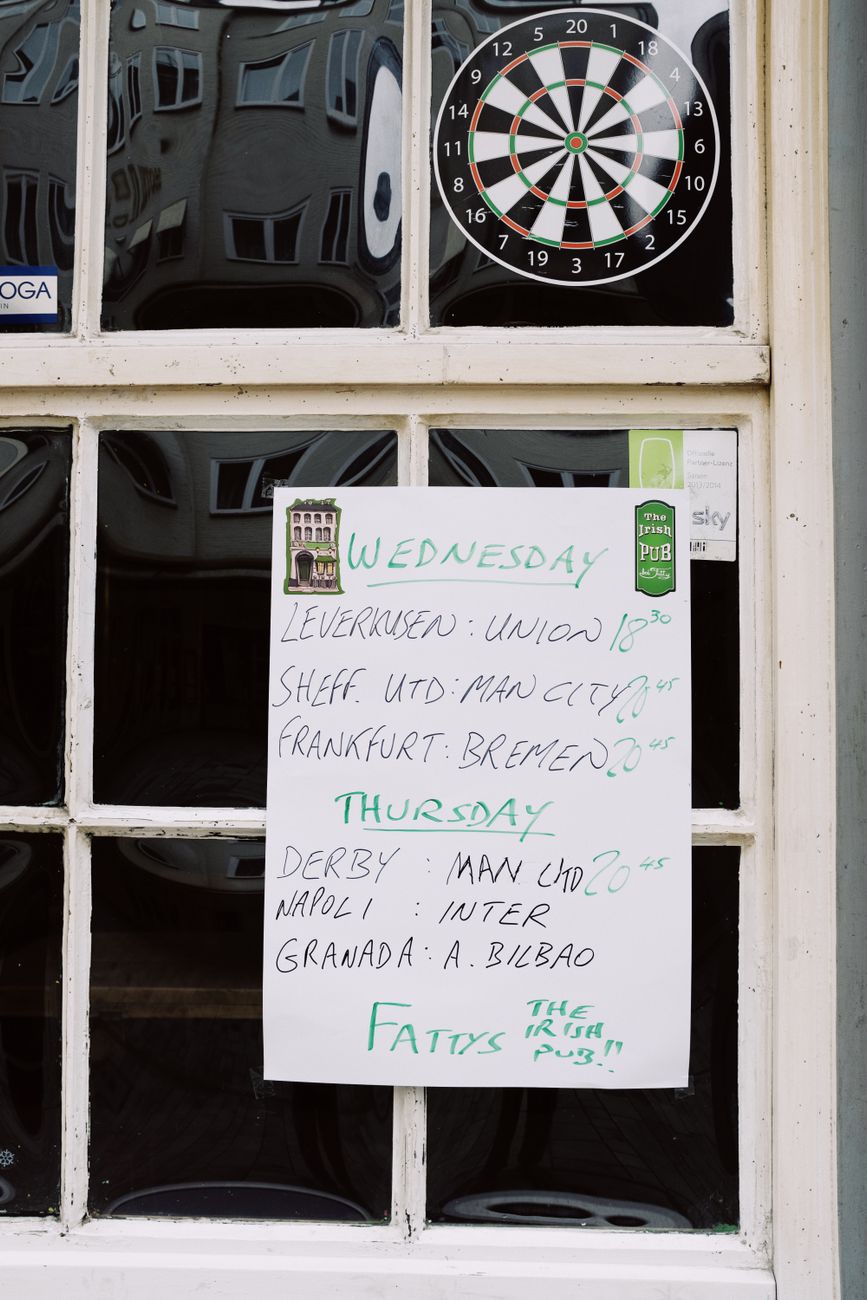 20
5 1
12 18
9 4
14 13
11 6
8 10
16 15
7 2
19 17
3
OGA
Offizielle
Partner-Lizenz
Saison
2013/2014
sky
The
Irish
PUB
WEDNESDAY
LEVERKUSEN : UNION 18 30
SHEFF. UTD : MAN CITY 20 45
FRANKFURT : BREMEN 20 45
THURSDAY
DERBY : MAN UTD 20 45
NAPOLI : INTER
GRANADA : A. BILBAO
FATTYS THE
IRISH
PUB!!